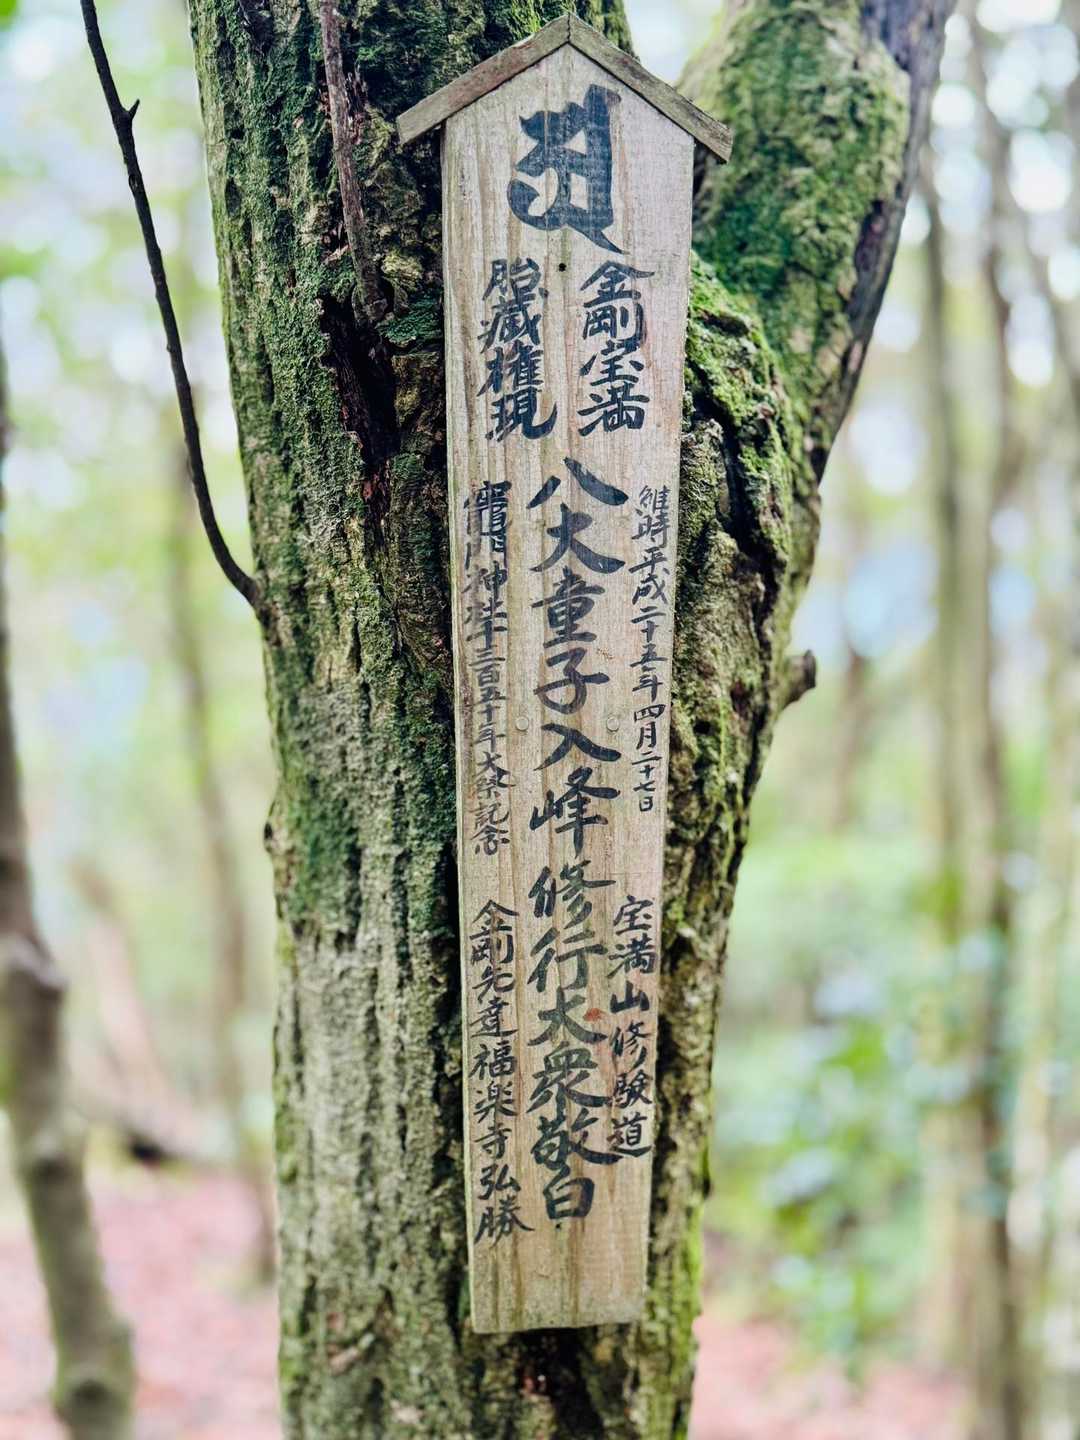 金剛宝満
胎藏権現
維時平成二十五年四月二十七日
八大童子入峰修行大衆敬白
竈門神社千三百五十年大祭記念
宝満山修験道
金剛先達福楽寺弘勝